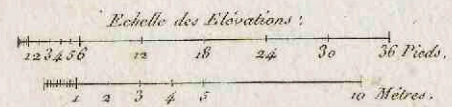 Echelle des Elévations :
1 2 3 4 5 6 12 18 24 30 36 Pieds.
1 2 3 4 5 10 Métres.